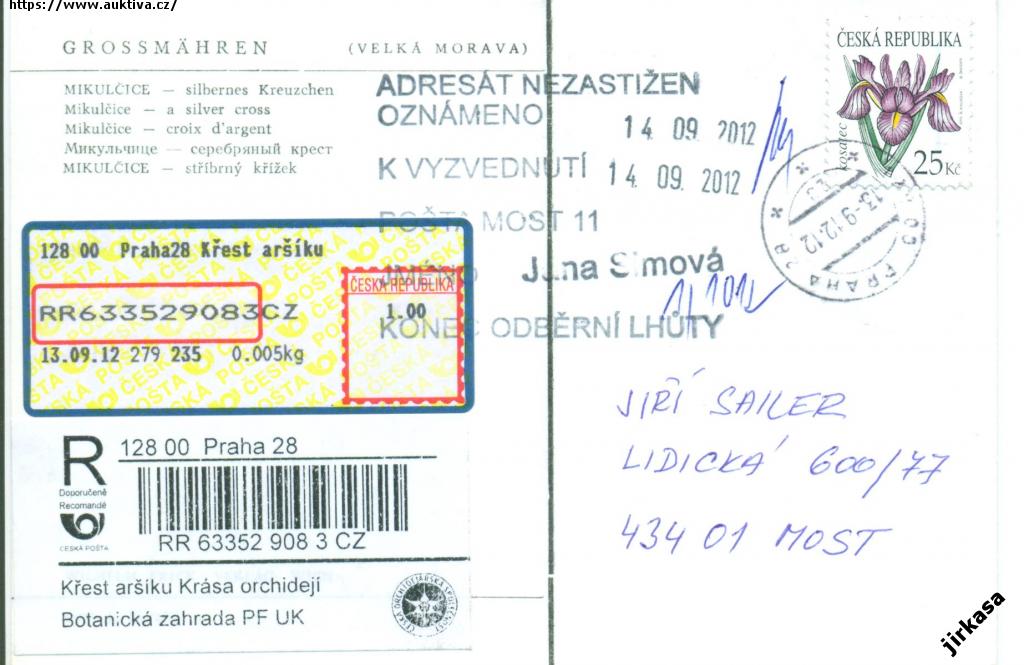 https://www.auktiva.cz/
GROSSMÄHREN (VELKÁ MORAVA)
MIKULČICE — silbernes Kreuzchen
Mikulčice — a silver cross
Mikulčice — croix d'argent
Микульчице — серебряный крест
MIKULČICE — stříbrný křížek
ADRESÁT NEZASTIŽEN
OZNÁMENO 14 09. 2012
K VYZVEDNUTÍ 14 09. 2012
POŠTA MOST 11
JMÉNO Jana Simová
KONEC ODBĚRNÍ LHŮTY
ČESKÁ REPUBLIKA
kosatec
25 Kč
13.-9.12.12
PRAHA 28
128 00 Praha28 Křest aršíku
RR633529083CZ
13.09.12 279 235 0.005kg
ČESKÁ REPUBLIKA
1.00
ČESKÁ POŠTA
R
Doporučeně
Recomandé
ČESKÁ POŠTA
128 00 Praha 28
RR 63352 908 3 CZ
Křest aršíku Krása orchidejí
Botanická zahrada PF UK
JIŘÍ SAILER
LIDICKÁ 600/77
434 01 MOST
jirkasa